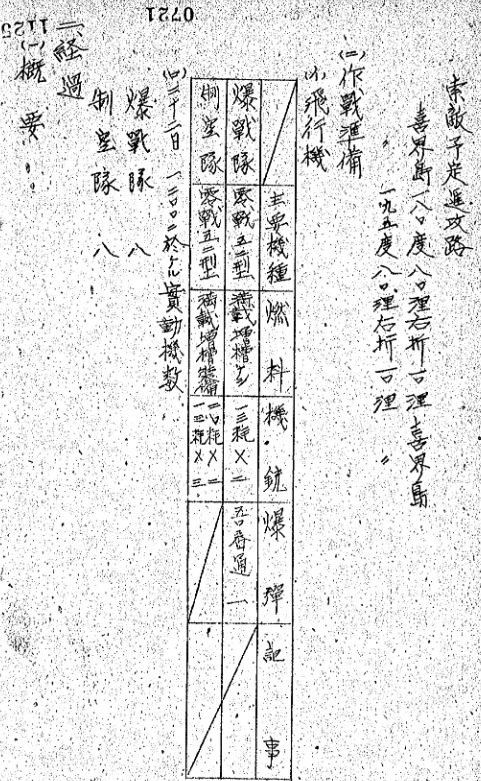 索敵予定進攻路
喜界島一八〇度八〇浬右折二〇浬喜界島
〃 一九五度八〇浬右折二〇浬 〃
(二)作戦準備
(イ)飛行機
主要機種 燃料 機銃 爆弾 記事
爆戦隊 零戦五二型 満載増槽ナシ 一三粍×二 五〇番通一
制空隊 零戦五二型 満載増槽装備 二〇粍×二 一三粍×三
(ロ)二十二日 一二〇〇ニ於ケル實動機数
爆戦隊 八
制空隊 八
二、経過
(一)概要
0721
1125